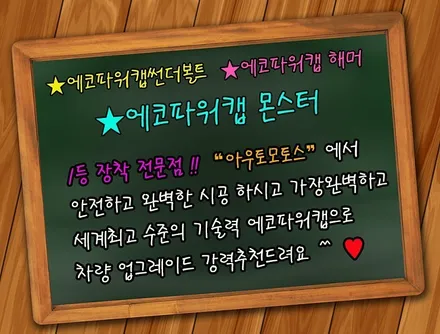 ★에코파워캡썬더볼트 ★에코파워캡 해머
★에코파워캡 몬스터
1등 장착 전문점 !! “아우토모토스” 에서
안전하고 완벽한 시공 하시고 가장완벽하고
세계최고 수준의 기술력 에코파워캡으로
차량 업그레이드 강력추천드려요 ^^ ♥